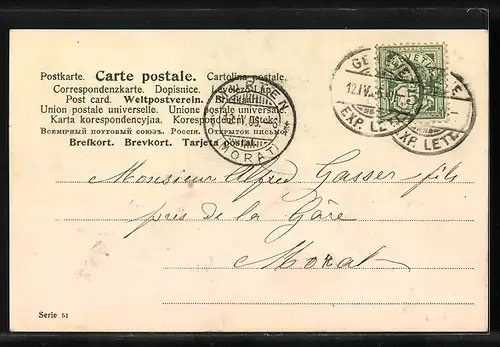 Postkarte. Carte postale. Cartolina postale.
Correspondenzkarte. Dopisnice. Levelező-Lap.
Post card. Weltpostverein.
Union postale universelle. Unione postale universale.
Karta korespondencyjna.
Всемірный почтовый союзъ. Россія. Открытое письмо.
Brefkort. Brevkort. Tarjeta postal.
MURTEN
(MORAT)
GENÈVE
12.IV.
EXP. LETT.
HELVETIA
5
EXP. LETT.
Monsieur Alfred Gasser fils
près de la Gâre
Morat
Serie 51